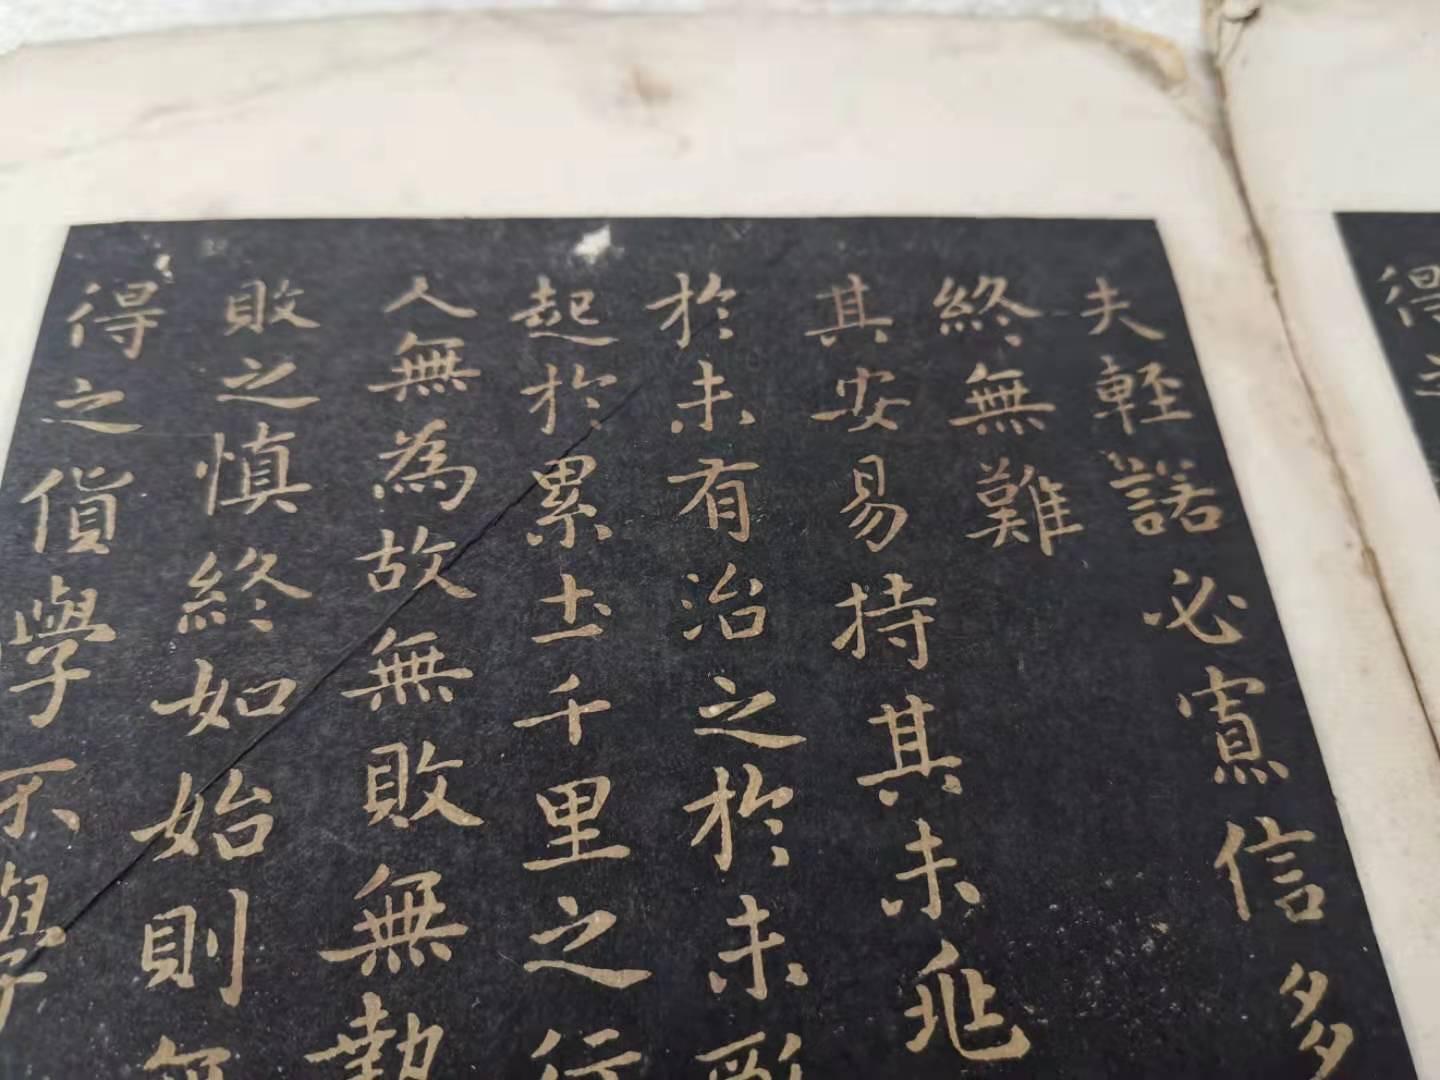 得之
夫輕諾必寡信多
終無難
其安易持其未兆
於未有治之於未
起於累土千里之行
人無為故無敗無執
敗之慎終如始則無
得之貨學不學